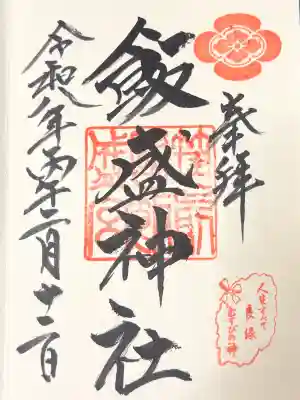 奉拝
飯盛神社
令和八年丙午二月十二日
人生すべて
良縁
むすびの神